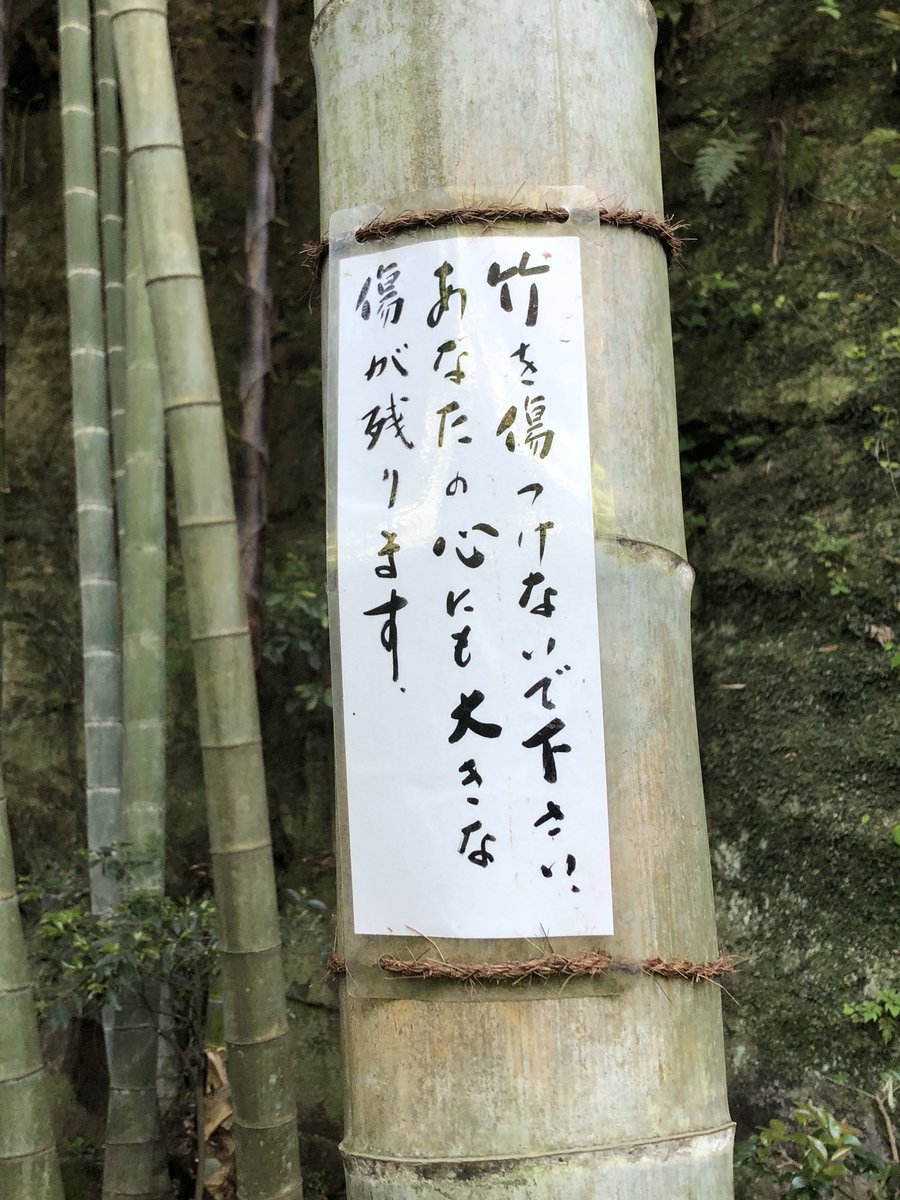 竹を傷つけないで下さい、
あなたの心にも大きな
傷が残ります.